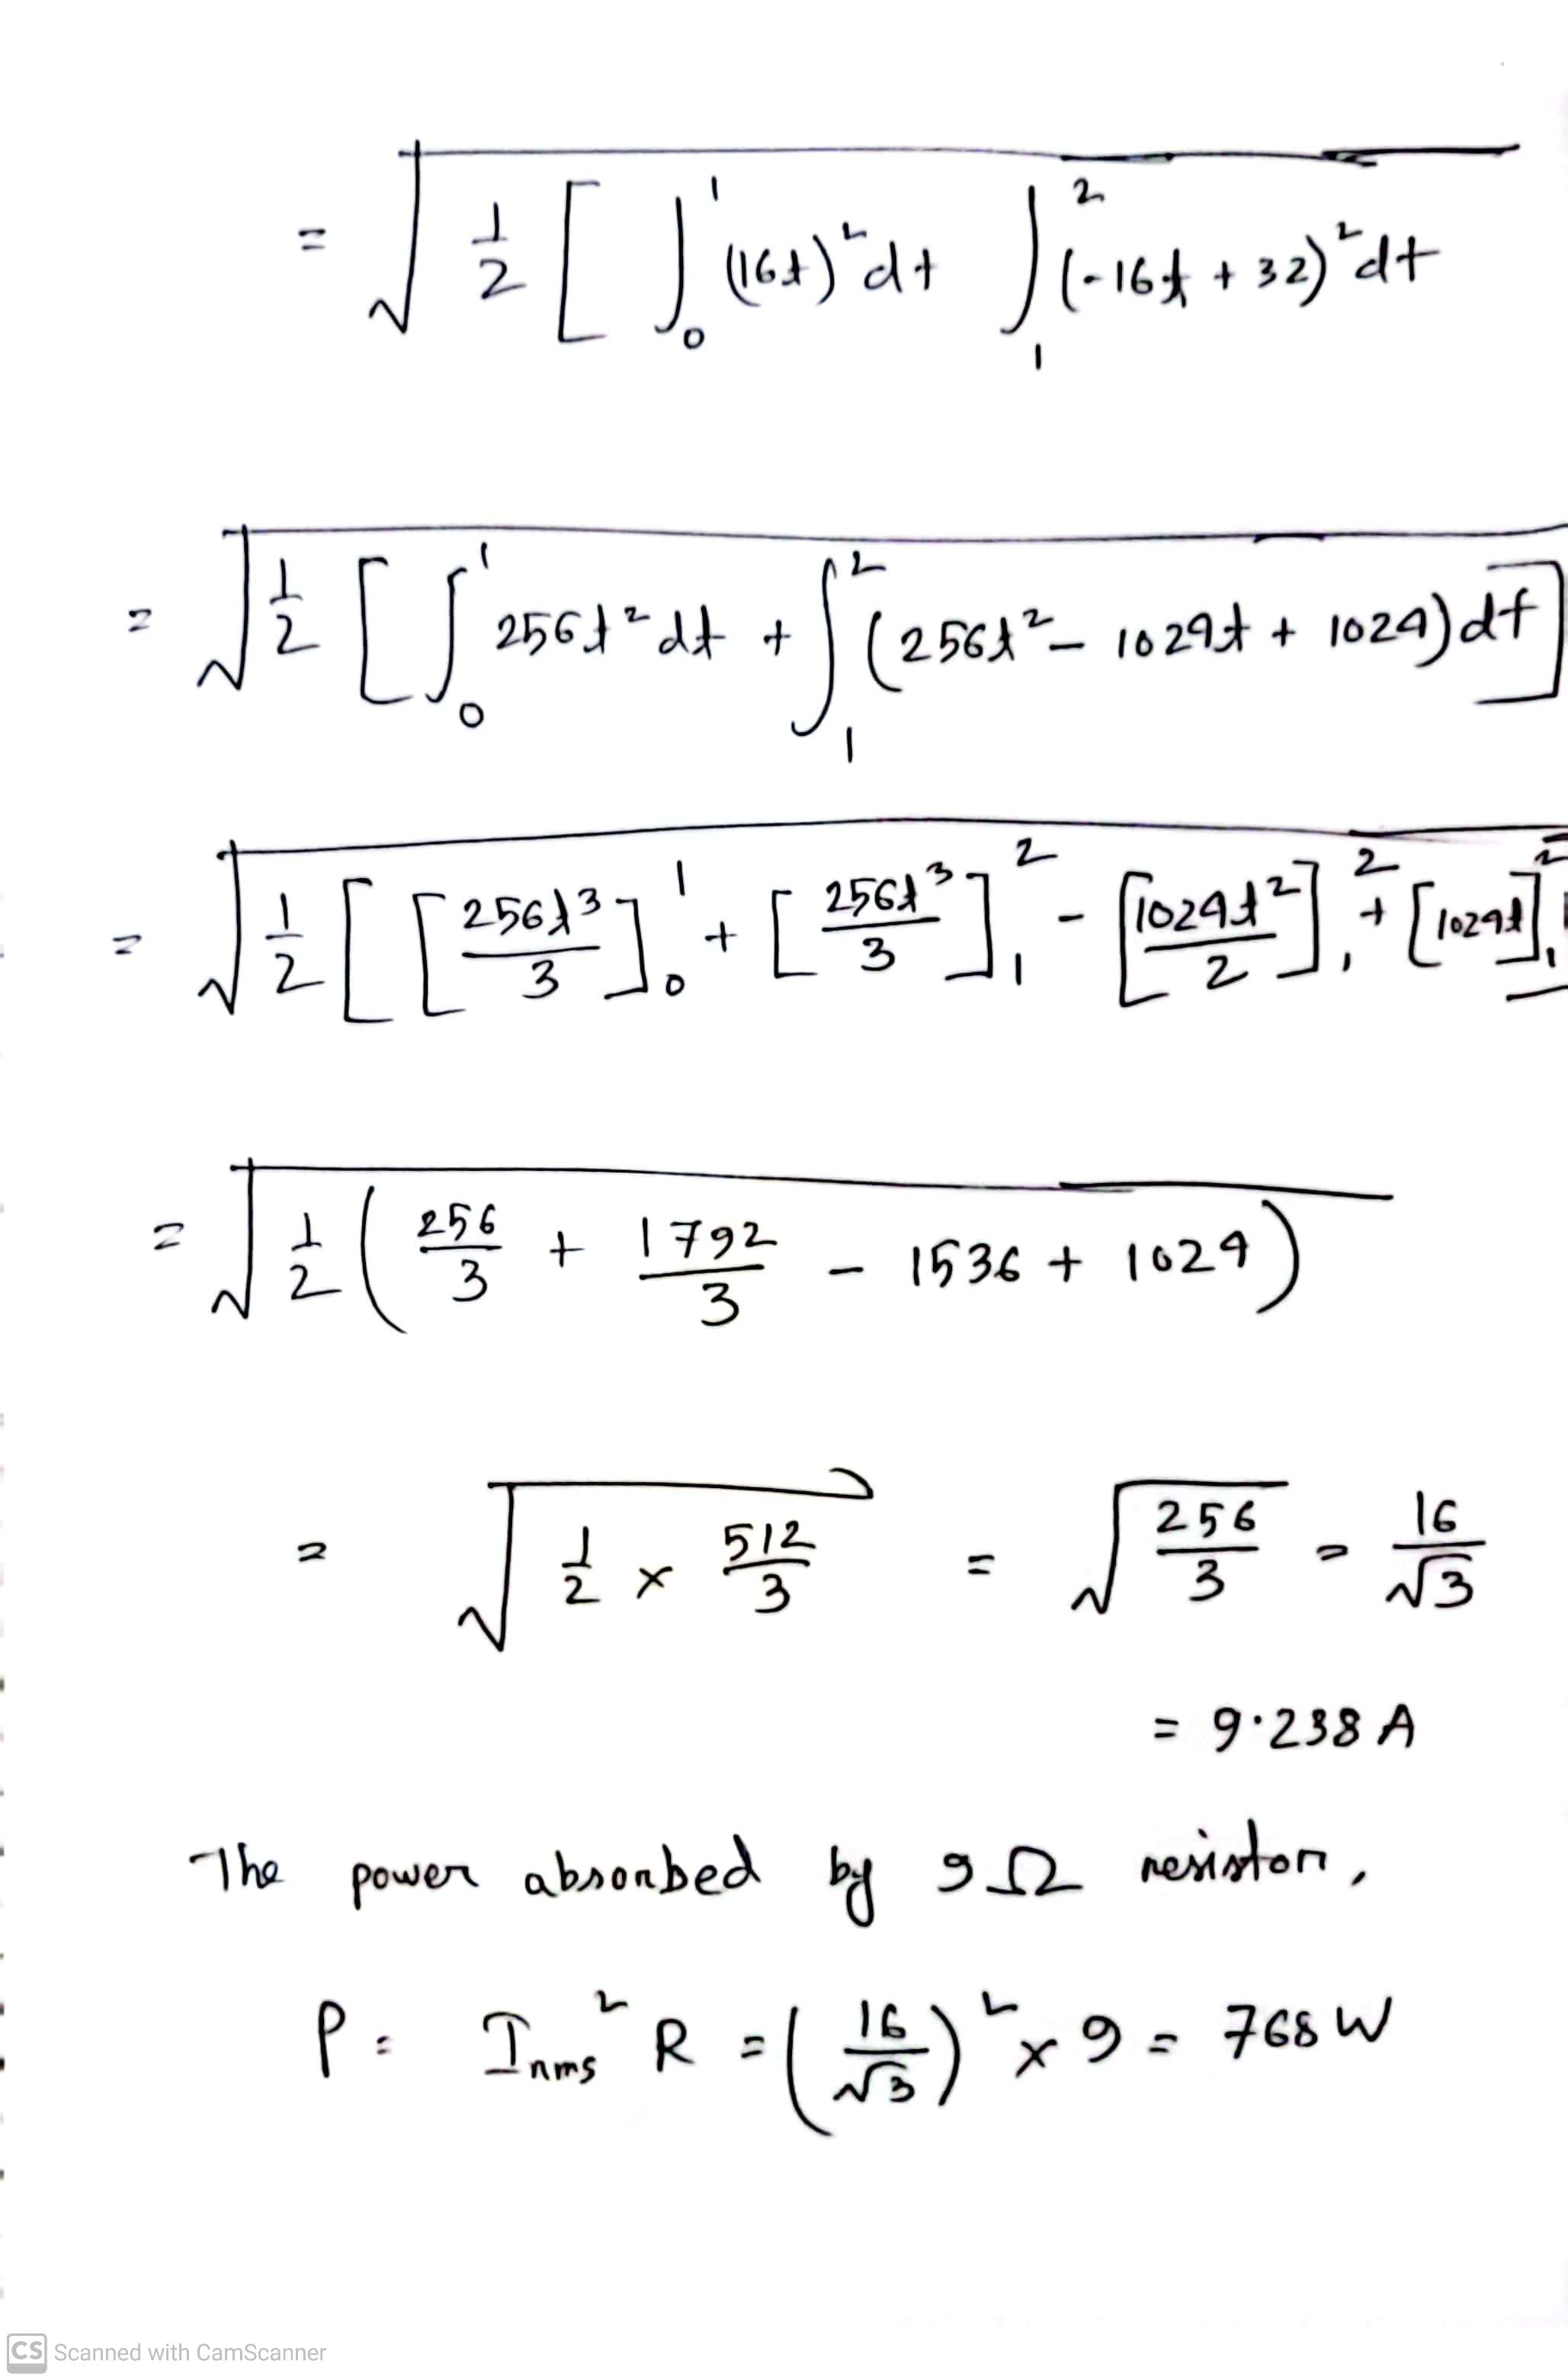 = √ 1/2 [ ∫₀¹ (16t)² dt ∫₁² (-16t + 32)² dt
= √ 1/2 [ ∫₀¹ 256t² dt + ∫₁² (256t² - 1024t + 1024) dt ]
= √ 1/2 [ [ 256t³/3 ]₀¹ + [ 256t³/3 ]₁² - [ 1024t²/2 ]₁² + [ 1024t ]₁²
= √ 1/2 ( 256/3 + 1792/3 - 1536 + 1024 )
= √ 1/2 × 512/3 = √ 256/3 = 16/√3
= 9.238 A
The power absorbed by 9 Ω resistor,
P = Irms² R = ( 16/√3 )² × 9 = 768 W
CS Scanned with CamScanner